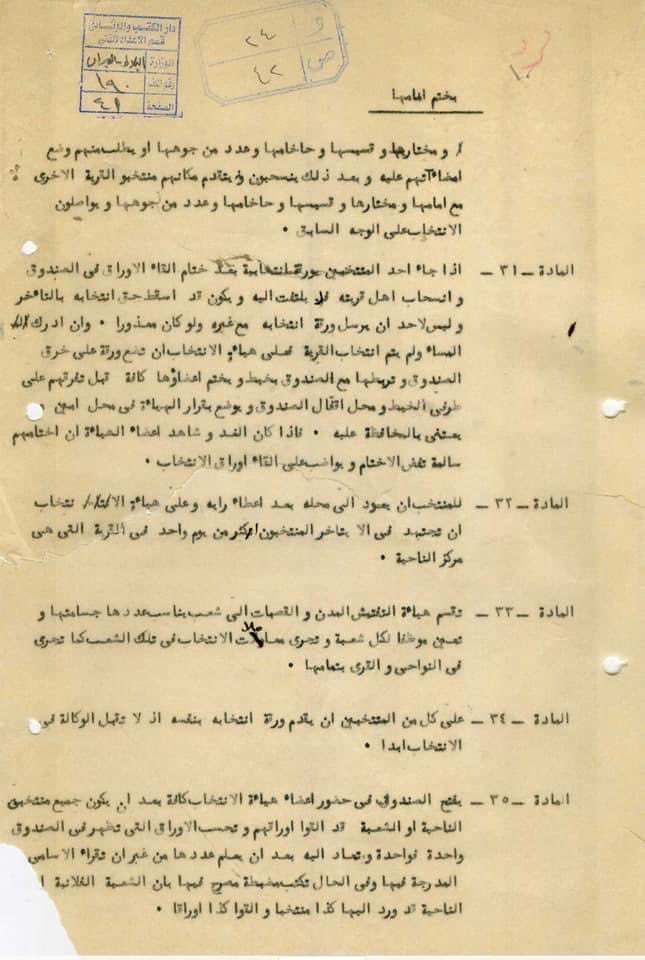 دار الكتب والوثائق
قسم الاعداد الفني
الوزارة البلاط - الديوان
رقم الملف ١٩٠
الصفحة ٤٢
و ٢٤
ص ٤٢
بختم امامها
/ و مختارها و قسيسها و حاخامها وعدد من وجوهها او يطلب منهم وضع
امضاءآتهم عليه و بعد ذلك ينسحبون و يتقدم مكانهم منتخبو القرية الاخرى
مع امامها و مختارها و قسيسها و حاخامها وعدد من وجوهها و يواصلون
الانتخاب على الوجه السابق .
المادة – ٣١ – اذا جاء احد المنتخبين بورقة انتخابية بعد ختام القاء الاوراق في الصندوق
و انسحاب اهل قريته فلا يلتفت اليه و يكون قد اسقط حق انتخابه بالتاءخر
و ليس لاحد ان يرسل ورقة انتخابه مع غيره ولو كان معذورا . وان ادرك
المساء ولم يتم انتخاب القرية فعلى هياءة الانتخاب ان تضع ورقة على خرق
الصندوق و تربطها مع الصندوق بخيط و يختم اعضاؤها كافة قبل تفرقهم على
طرفي الخيط و محل اقفال الصندوق و يوضع بقرار الهياءة في محل امين و
يعتنى بالمحافظة عليه . فاذا كان الغد و شاهد اعضاء الهياءة ان اختامهم
سالمة تفض الاختام و يواضب على القاء اوراق الانتخاب .
المادة – ٣٢ – للمنتخب ان يعود الى محله بعد اعطاء رايه وعلى هياءة الانتخاب
ان تجتهد في الا يتاخر المنتخبون اكثر من يوم واحد في القرية التي هي
مركز الناحية .
المادة – ٣٣ – تقسم هياءة التفتيش المدن و القصبات الى شعب يناسب عددها جسامتها و
تعين موظفا لكل شعبة و تجرى معاملات الانتخاب في تلك الشعب كما تجرى
في النواحي و القرى بتمامها .
المادة – ٣٤ – على كل من المنتخبين ان يقدم ورقة انتخابه بنفسه اذ لا تقبل الوكالة في
الانتخاب ابدا .
المادة – ٣٥ – يفتح الصندوق في حضور اعضاء هياءة الانتخاب كافة بعد ان يكون جميع منتخبى
الناحية او الشعبة قد القوا اوراقهم و تحسب الاوراق التي تظهر في الصندوق
واحدة فواحدة و تعاد اليه بعد ان يعلم عددها من غير ان تقراء الاسامى
المدرجة فيها وفي الحال تكتب مضبطة مصرح فيها بان الشعبة الفلانية ا
الناحية قد ورد اليها كذا منتخبا و القوا كذا اوراقا .